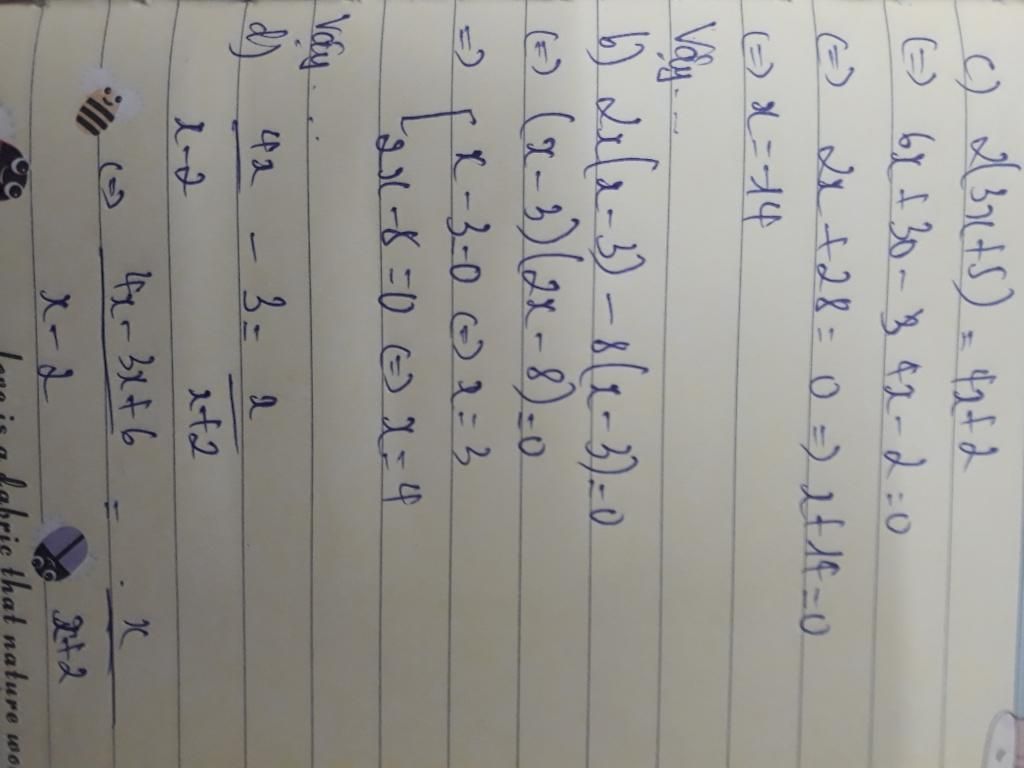 c) 2(3x+5) = 4x+2
(=) 6x + 30 - 4x - 2 = 0
(=) 2x + 28 = 0 =) 2+14=0
(=) x = -14
Vậy...
b) 2x(x-3) - 8(x-3)=0
(=) (x-3)(2x-8)=0
=) [ x-3=0 (=) x=3
2x-8=0 (=) x=4
Vậy...
d) 4x/x-2 - 3 = x/x+2
(=) 4x-3x+6/x-2 = x/x+2
love is a fabric that nature wo